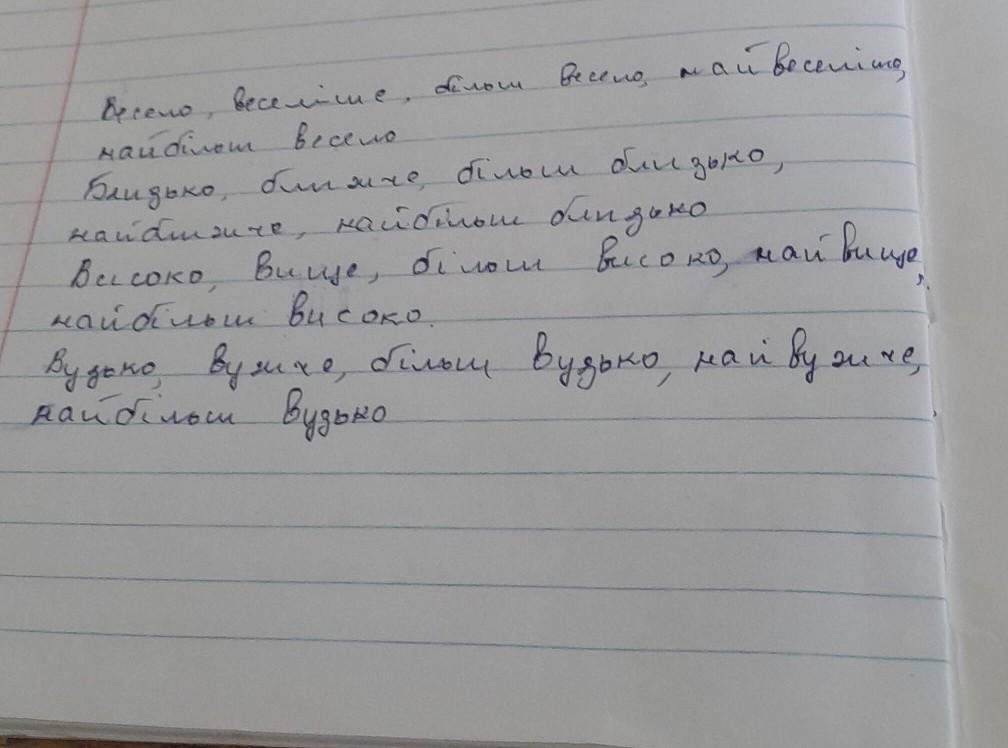 Весело, веселіше, більш весело, найвеселіше,
найбільш весело
Близько, ближче, більш близько,
найближче, найбільш близько
Високо, вище, більш високо, найвище,
найбільш високо.
Вузько, вужче, більш вузько, найвужче,
найбільш вузько